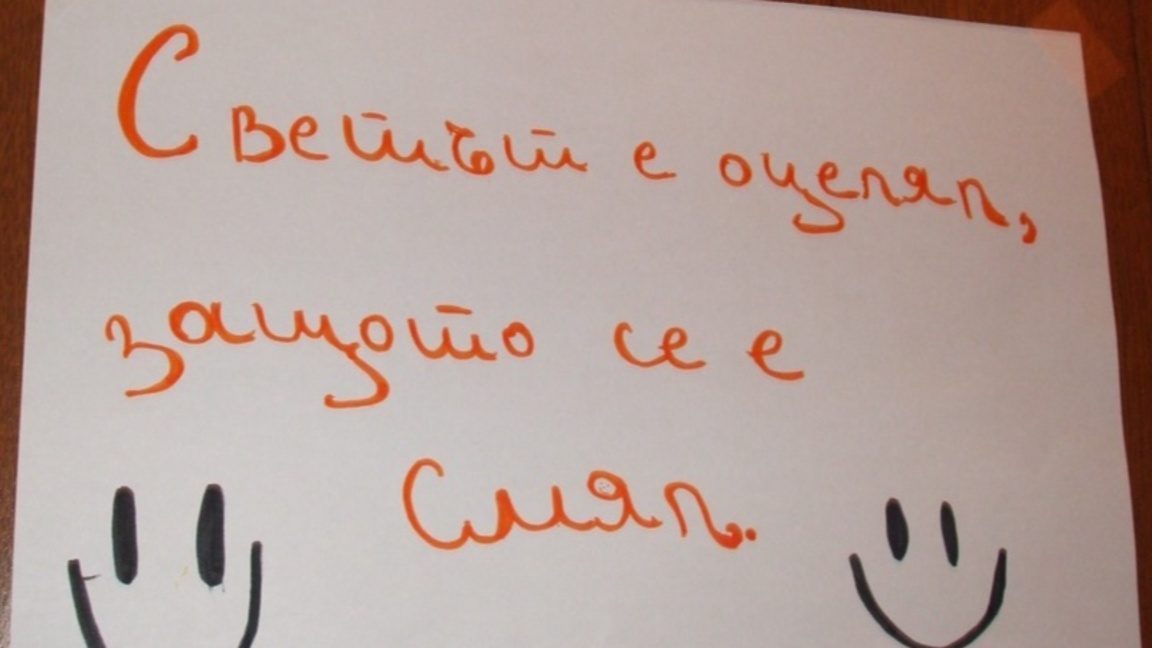 Светът е оцелял,
защото се е
Смял.